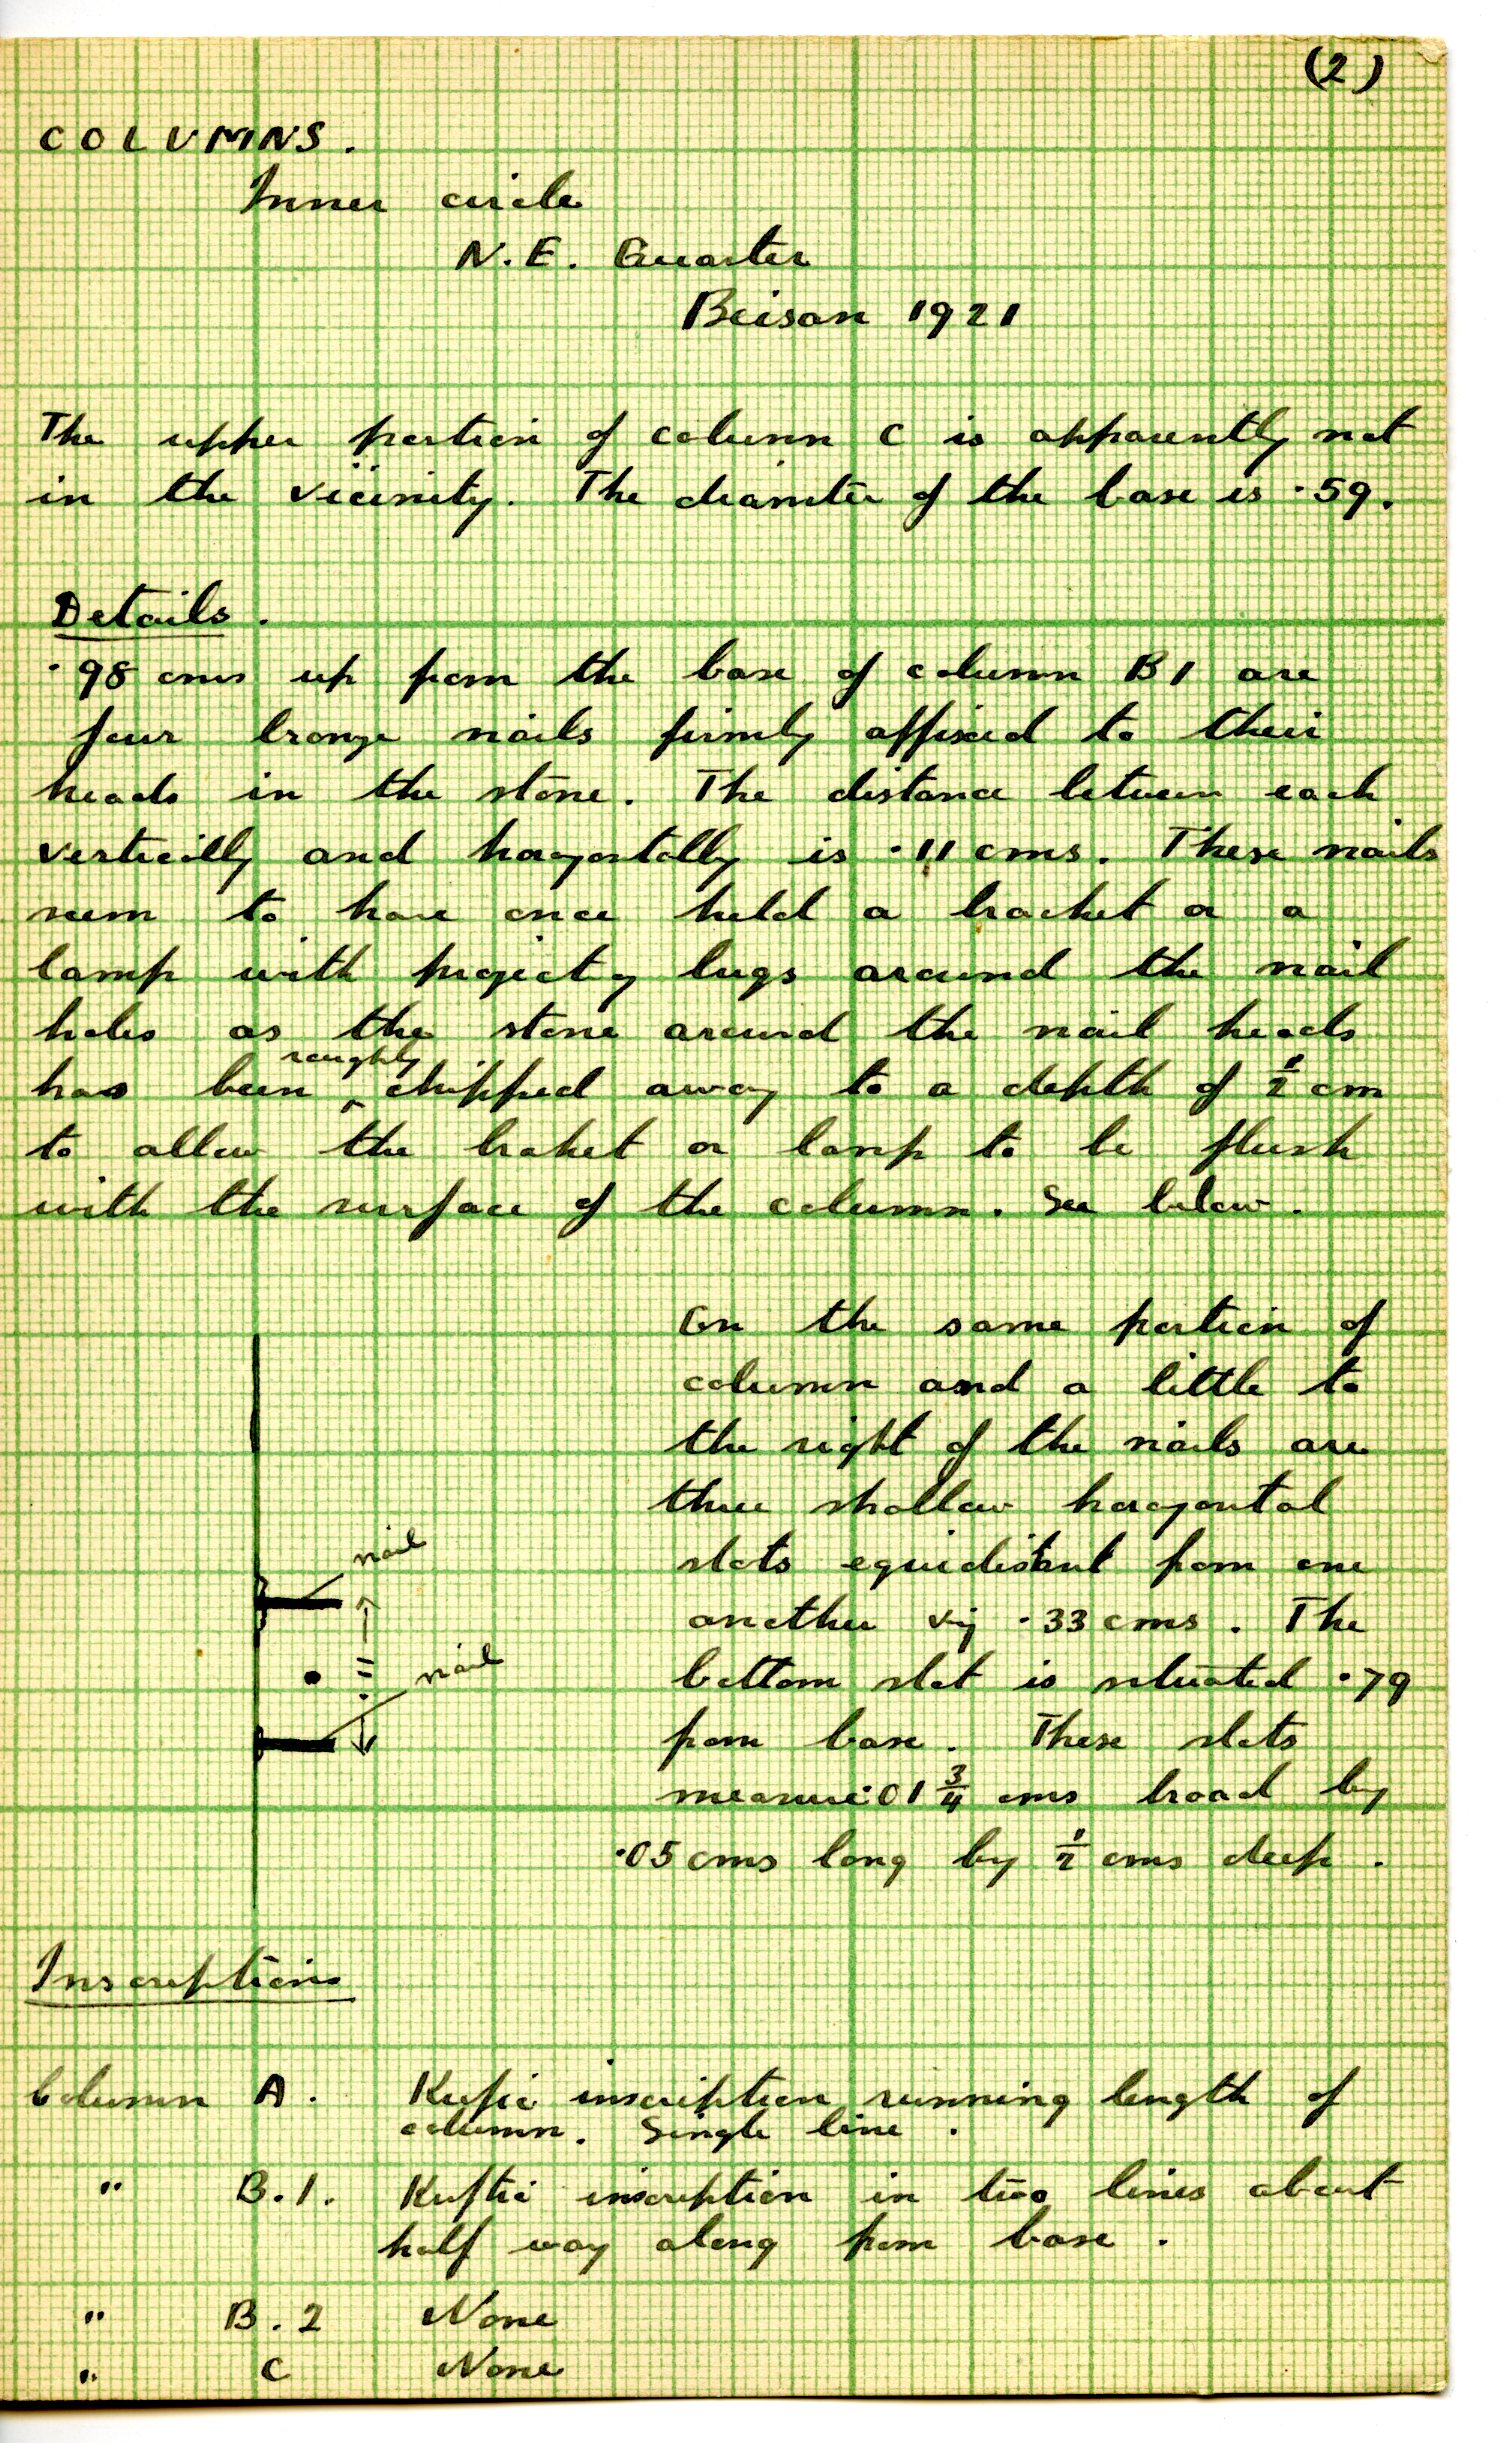 (2)
COLUMNS.
Inner circle
N.E. Quarter
Beisan 1921
The upper portion of column C is apparently not
in the vicinity. The diameter of the base is ·59.
Details.
·98 cms up from the base of column B1 are
four bronze nails firmly affixed to their
heads in the stone. The distance between each
vertically and horizontally is ·11 cms. These nails
seem to have once held a bracket or a
lamp with projecting lugs around the nail
holes as the stone around the nail heads
has been roughly chipped away to a depth of ½ cm
to allow the braket or lamp to be flush
with the surface of the column. See below.
On the same portion of
column and a little to
the right of the nails are
three shallow horizontal
slots equidistant from one
another viz ·33 cms. The
bottom slot is situated ·79
from base. These slots
measure ·01 ¾ cms broad by
·05 cms long by ½ cms deep.
nail
·11
nail
Inscriptions
Column A. Kufic inscription running length of
column. Single line.
" B.1. Kuftic inscription in two lines about
half way along from base.
" B.2 None
" C None